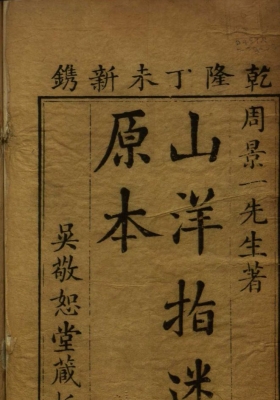 乾隆丁未新鐫
周景一先生著
山洋指迷
原本
吳敬恕堂藏